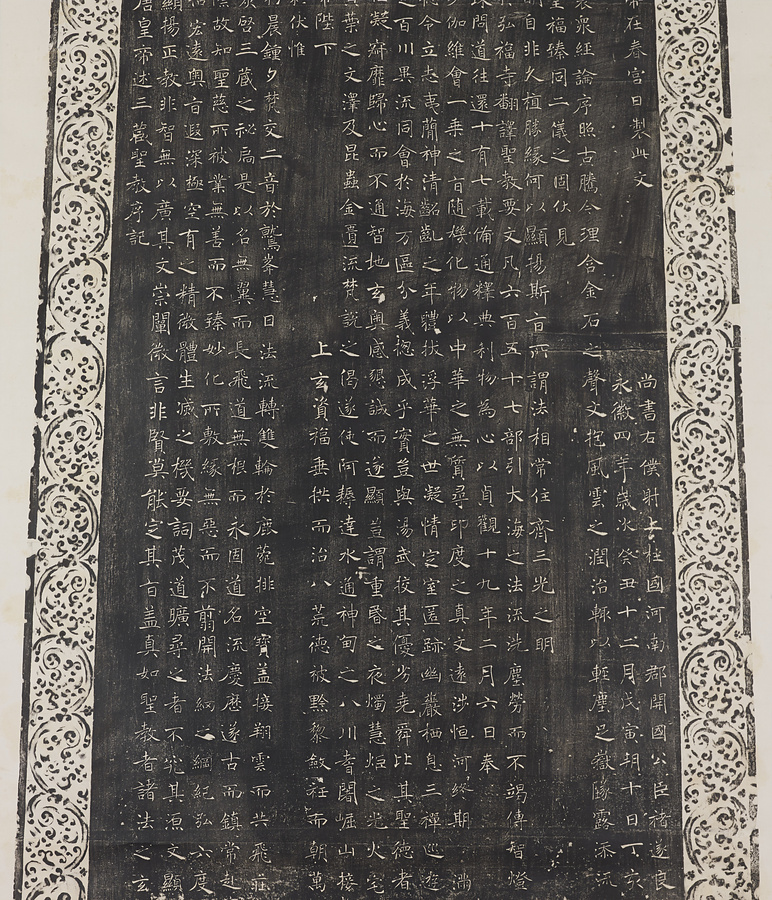 唐皇帝述三藏聖教序記
顯揚正教非智無以廣其文崇闡微言非賢莫能定其旨蓋真如聖教者諸法之玄
宏遠奧旨遐深極空有之精微體生滅之機要詞茂道曠尋之者不究其源文顯
際故知聖慈所被業無善而不臻妙化所敷緣無惡而不翦開法網之綱紀弘六度
啓三藏之祕扃是以名無翼而長飛道無根而永固道名流慶歷遂古而鎮常赴
晨鍾夕梵交二音於鷲峯慧日法流轉雙輪於鹿菀排空寶蓋接翔雲而共飛莊
伏惟
帝陛下
上玄資福垂拱而治八荒德被黔黎斂衽而朝萬
葉之文澤及昆蟲金匱流梵說之偈遂使阿耨達水通神甸之八川耆闍崛山接
凝寂靡歸心而不通智地玄奧感懇誠而遂顯豈謂重昏之夜燭慧炬之光火宅
之百川異流同會於海万區分義揔成乎實豈與湯武挍其優劣堯舜比其聖德者
令立志夷簡神清齠齔之年體拔浮華之世凝情定室匿跡幽巖栖息三禪巡遊
伽維會一乘之旨隨機化物以中華之無質尋印度之真文遠涉恒河終期滿
問道往還十有七載備通釋典利物為心以貞觀十九年二月六日奉
弘福寺翻譯聖教要文凡六百五十七部引大海之法流洗塵勞而不竭傳智燈
自非久植勝緣何以顯揚斯旨所謂法相常住齊三光之明
福臻同二儀之固伏見
衆經論序照古騰今理含金石之聲文抱風雲之潤治輒以輕塵足嶽墜露添流
帝在春宮日製此文
永徽四年歲次癸丑十二月戊寅朔十日丁亥
尚書右僕射上柱國河南郡開國公臣褚遂良